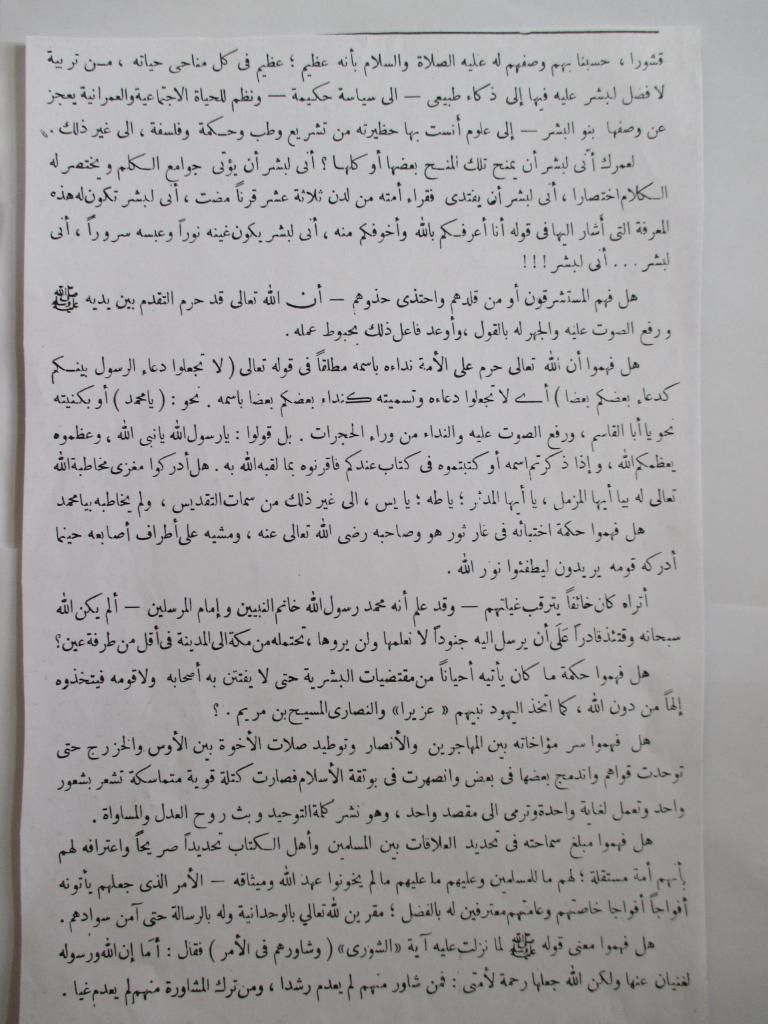 قشورا ، حسبنا بهم وصفهم له عليه الصلاة والسلام بأنه عظيم ؛ عظيم فى كل مناحى حياته ، من تربية
لا فضل لبشر عليه فيها إلى ذكاء طبيعى — الى سياسة حكيمة — ونظم للحياة الاجتماعية والعمرانية يعجز
عن وصفها بنو البشر — إلى علوم أنست بها حظيرته من تشريع وطب وحكمة وفلسفة ، الى غير ذلك .
لعمرك أنى لبشر أن يمنح تلك المنح بعضها أو كلها ؟ أنى لبشر أن يؤتى جوامع الكلم ويختصر له
الكلام اختصارا ، أنى لبشر أن يفتدى فقراء أمته من لدن ثلاثة عشر قرناً مضت ، أنى لبشر تكون له هذه
المعرفة التى أشار اليها فى قوله أنا أعرفكم بالله وأخوفكم منه ، أنى لبشر يكون غينه نوراً وعبسه سروراً ، أنى
لبشر . . . أنى لبشر ! ! !
هل فهم المستشرقون أو من قلدهم واحتذى حذوهم — أن الله تعالى قد حرم التقدم بين يديه ﷺ
ورفع الصوت عليه والجهر له بالقول ، وأوعد فاعل ذلك بحبوط عمله .
هل فهموا أن الله تعالى حرم على الأمة نداءه باسمه مطلقاً فى قوله تعالى ( لا تجعلوا دعاء الرسول بينكم
كدعاء بعضكم بعضا ) أى لا تجعلوا دعاءه وتسميته كنداء بعضكم بعضا باسمه . نحو : ( يا محمد ) أو بكنيته
نحو يا أبا القاسم ، ورفع الصوت عليه والنداء من وراء الحجرات . بل قولوا : يارسول الله يانبى الله ، وعظموه
يعظمكم الله ، وإذا ذكرتم اسمه أو كتبتموه فى كتاب عندكم فاقرنوه بما لقبه الله به . هل أدركوا مغزى مخاطبة الله
تعالى له بيا أيها المزمل ، يا أيها المدثر ؛ ياطه ؛ يا يس ، الى غير ذلك من سمات التقديس ، ولم يخاطبه بيا محمد
هل فهموا حكمة اختبائه فى غار ثور هو وصاحبه رضى الله تعالى عنه ، ومشيه على أطراف أصابعه حينما
أدركه قومه يريدون ليطفئوا نور الله .
أتراه كان خائفاً يترقب غيابتهم — وقد علم أنه محمد رسول الله خاتم النبيين وإمام المرسلين — ألم يكن الله
سبحانه وقتئذ قادراً على أن يرسل اليه جنوداً لا نعلمها ولن يروها ، تحتمله من مكة الى المدينة فى أقل من طرفة عين ؟
هل فهموا حكمة ما كان يأتيه أحياناً من مقتضيات البشرية حتى لا يفتتن به أصحابه ولا قومه فيتخذوه
إلهاً من دون الله ، كما اتخذ اليهود نبيهم « عزيرا » والنصارى المسيح بن مريم . ؟
هل فهموا سر مؤاخاته بين المهاجرين والأنصار وتوطيد صلات الأخوة بين الأوس والخزرج حتى
توحدت قواهم واندمج بعضها فى بعض وانصهرت فى بوتقة الأسلام فصارت كتلة قوية متماسكة تشعر بشعور
واحد وتعمل لغاية واحدة وترمى الى مقصد واحد ، وهو نشر كلمة التوحيد وبث روح العدل والمساواة .
هل فهموا مبلغ سماحته فى تحديد العلاقات بين المسلمين وأهل الكتاب تحديداً صريحاً واعترافه لهم
بأنهم أمة مستقلة ؛ لهم ما للمسلمين وعليهم ما عليهم ما لم يخونوا عهد الله وميثاقه — الأمر الذى جعلهم يأتونه
أفواجاً أفواجا خاصتهم وعامتهم معترفين له بالفضل ؛ مقرين لله تعالي بالوحدانية وله بالرسالة حتى آمن سوادهم .
هل فهموا معنى قوله ﷺ لما نزلت عليه آية «الشورى» ( وشاورهم فى الأمر ) فقال : أما إن الله ورسوله
لغنيان عنها ولكن الله جعلها رحمة لأمتى : فمن شاور منهم لم يعدم رشدا ، ومن ترك المشاورة منهم لم يعدم غيا .